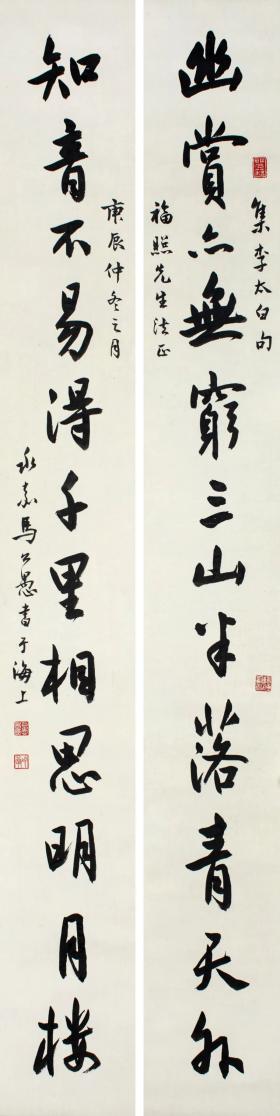 集李太白句
幽賞亦無窮三山半落青天外
福照先生法正
庚辰仲冬之月
知音不易得千里相思明月樓
永嘉馬公愚書于海上